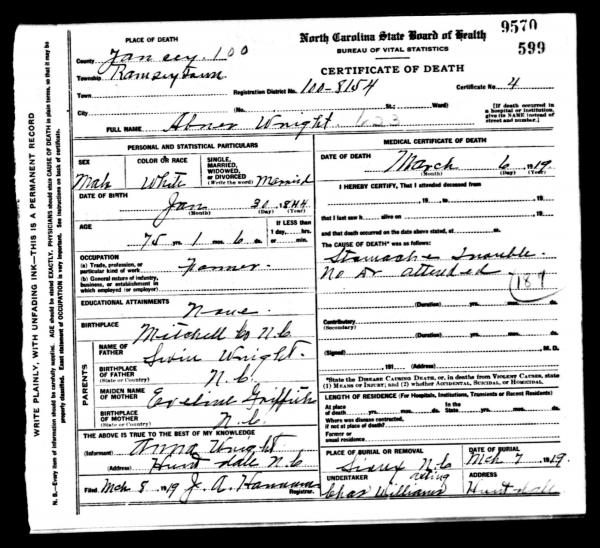 North Carolina State Board of Health
BUREAU OF VITAL STATISTICS
9570
599
CERTIFICATE OF DEATH
PLACE OF DEATH
County Yancey. 100
Township Ramseytown
Town Registration District No. 100-8154 Certificate No. 4
City (No. St.; Ward) [If death occurred in a hospital or institution, give its NAME instead of street and number.]
FULL NAME Abner Wright 623
PERSONAL AND STATISTICAL PARTICULARS
SEX Male
COLOR OR RACE White
SINGLE, MARRIED, WIDOWED, OR DIVORCED (Write the word) Married
DATE OF BIRTH Jan 31, 1844
(Month) (Day) (Year)
AGE 75 yrs. 1 mos. 6 ds.
If LESS than 1 day, hrs. or min.
OCCUPATION
(a) Trade, profession, or particular kind of work Farmer.
(b) General nature of industry, business, or establishment in which employed (or employer)
EDUCATIONAL ATTAINMENTS None
BIRTHPLACE Mitchell Co N.C
PARENTS
NAME OF FATHER Wright.
BIRTHPLACE OF FATHER (State or Country) N.C.
MAIDEN NAME OF MOTHER Eveline Griffith
BIRTHPLACE OF MOTHER (State or Country) N.C.
THE ABOVE IS TRUE TO THE BEST OF MY KNOWLEDGE
(Informant) Anna Wright
(Address) Hunt dale N.C
Filed Mch 8 1919 J. A. Hannum Registrar.
MEDICAL CERTIFICATE OF DEATH
DATE OF DEATH March 6, 1919.
(Month) (Day) (Year)
I HEREBY CERTIFY, That I attended deceased from
, 19 , to , 19
that I last saw h alive on , 19
and that death occurred on the date above stated, at m.
The CAUSE OF DEATH* was as follows:
Stomach Trouble.
No Dr attended
189
(Duration) yrs. mos. ds.
Contributory (Secondary)
(Duration) yrs. mos. ds.
(Signed) M.D.
, 191 (Address)
*State the DISEASE CAUSING DEATH, or, in deaths from VIOLENT CAUSES, state (1) MEANS OF INJURY; and (2) whether ACCIDENTAL, SUICIDAL, or HOMICIDAL.
LENGTH OF RESIDENCE (For Hospitals, Institutions, Transients or Recent Residents)
At place of death yrs. mos. ds. In the State yrs. mos. ds.
Where was disease contracted, if not at place of death?
Former or usual residence
PLACE OF BURIAL OR REMOVAL Sioux N.C
DATE OF BURIAL Mch 7, 1919.
UNDERTAKER acting Chas Williams
ADDRESS Huntdale
WRITE PLAINLY, WITH UNFADING INK—THIS IS A PERMANENT RECORD
N. B.—Every item of information should be carefully supplied. AGE should be stated EXACTLY. PHYSICIANS should state CAUSE OF DEATH in plain terms, so that it may be properly classified. Exact statement of OCCUPATION is very important. See instructions on back of certificate.